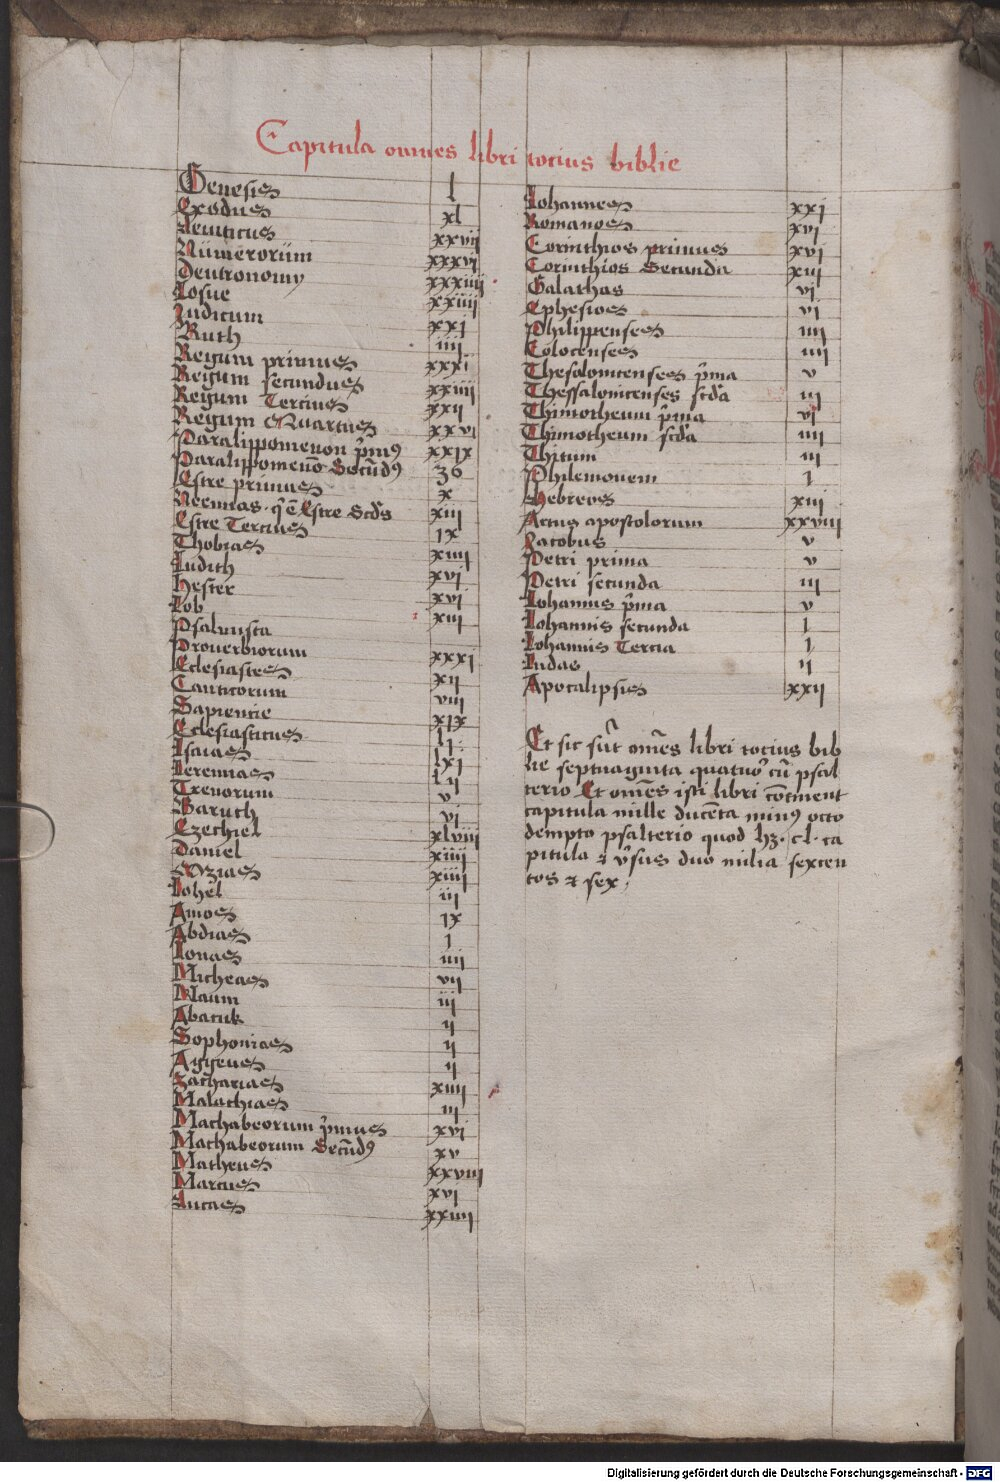 Capitula omnes libri tocius biblie
Genesis l
Exodus xl
Leuiticus xxvii
Numerorum xxxvi
Deutronomy xxxiiii
Iosue xxiiii
Iudicum xxi
Ruth iiii
Regum primus xxxi
Regum secundus xxiiii
Regum Tercius xxii
Regum Quartus xxvi
Paralippomenon p̄mꝰ xxix
Paralippomenō Secūdꝰ 36
Esre primus x
Neemias · q̄ ē Esre Scd̄s xiii
Esre Tercius ix
Thobias xiiii
Iudith xvi
Hester xvi
Iob xiii
Psalmista
Prouerbiorum xxxi
Eclesiastes xii
Canticorum viii
Sapiencie xix
Eclesiasticus li
Isaias lxi
Ieremias lii
Trenorum v
Baruch vi
Ezechiel xlviii
Daniel xiiii
Ozias xiiii
Iohel iii
Amos ix
Abdias i
Ionas iiii
Micheas vii
Naum iii
Abacuk ii
Sophonias ii
Aggeus ii
Zacharias xiiii
Malachias iii
Machabeorum p̄mus xvi
Machabeorum Secūdꝰ xv
Matheus xxviii
Marcus xvi
Lucas xxiiii
Iohannes xxi
Romanos xvi
Corinthios primus xvi
Corinthios Secunda xiii
Galathas vi
Ephesios vi
Philippenses iiii
Colocenses iiii
Thesolonicenses p̄ma v
Thessalonicenses scd̄a iii
Thimotheum p̄ma vi
Thimotheum scd̄a iiii
Thitum iii
Philemonem i
Hebreos xiii
Actus apostolorum xxviii
Iacobus v
Petri prima v
Petri secunda iii
Iohannis p̄ma v
Iohannis secunda i
Iohannis Tercia i
Iudas ii
Apocalipsis xxii
Et sic sūt om̄es libri tocius bib
lie septuaginta quatuoꝛ cū psal
terio Et om̄es isti libri cōtinent
capitula mille ducēta minꝰ octo
dempto psalterio quod hꝫ · cl · ca
pitula ⁊ v̄sus duo milia sexcen
tos ⁊ sex
Digitalisierung gefördert durch die Deutsche Forschungsgemeinschaft - DFG